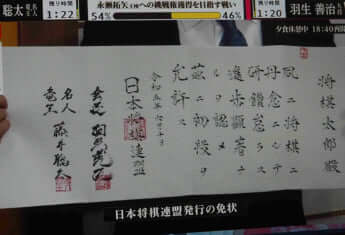 聡太
残り時間
1:22
永瀬拓矢王座への挑戦権獲得を目指す戦い
54%
46%
残り時間
1:20
羽生善治
夕食休憩中 18:40再開
将棋太郎殿
夙ニ将棋ニ
丹念ニシテ
研鑽怠ラス
進歩顕著ナ
ルヲ認メ
茲ニ初段ヲ
允許ス
令和五年
日本将棋連盟
会長 羽生善治
名人
竜王 藤井聡太
日本将棋連盟発行の免状